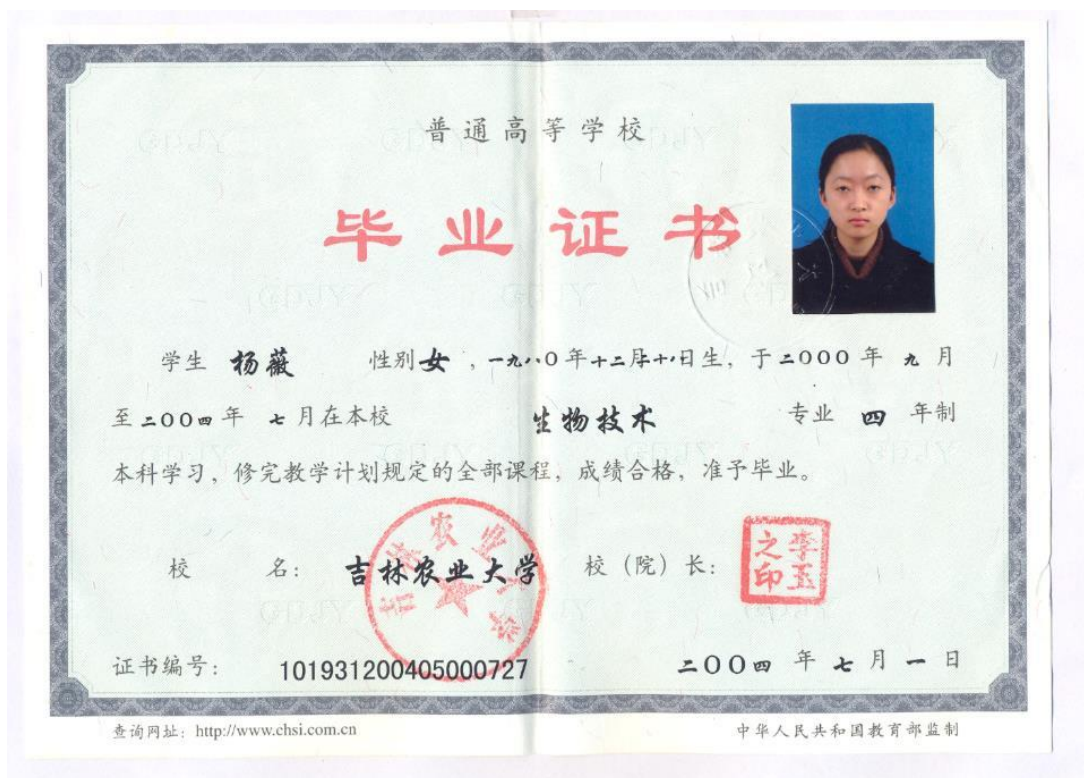 普通高等学校
毕业证书
学生 杨薇 性别女，一九八〇年十二月十八日生，于二〇〇〇年 九 月
至二〇〇四年 七 月在本校 生物技术 专业 四 年制
本科学习，修完教学计划规定的全部课程，成绩合格，准予毕业。
校 名： 吉林农业大学 校（院）长：
吉林农业大学
李玉之印
证书编号： 101931200405000727
二〇〇四 年 七 月 一 日
查询网址：http://www.chsi.com.cn
中华人民共和国教育部监制